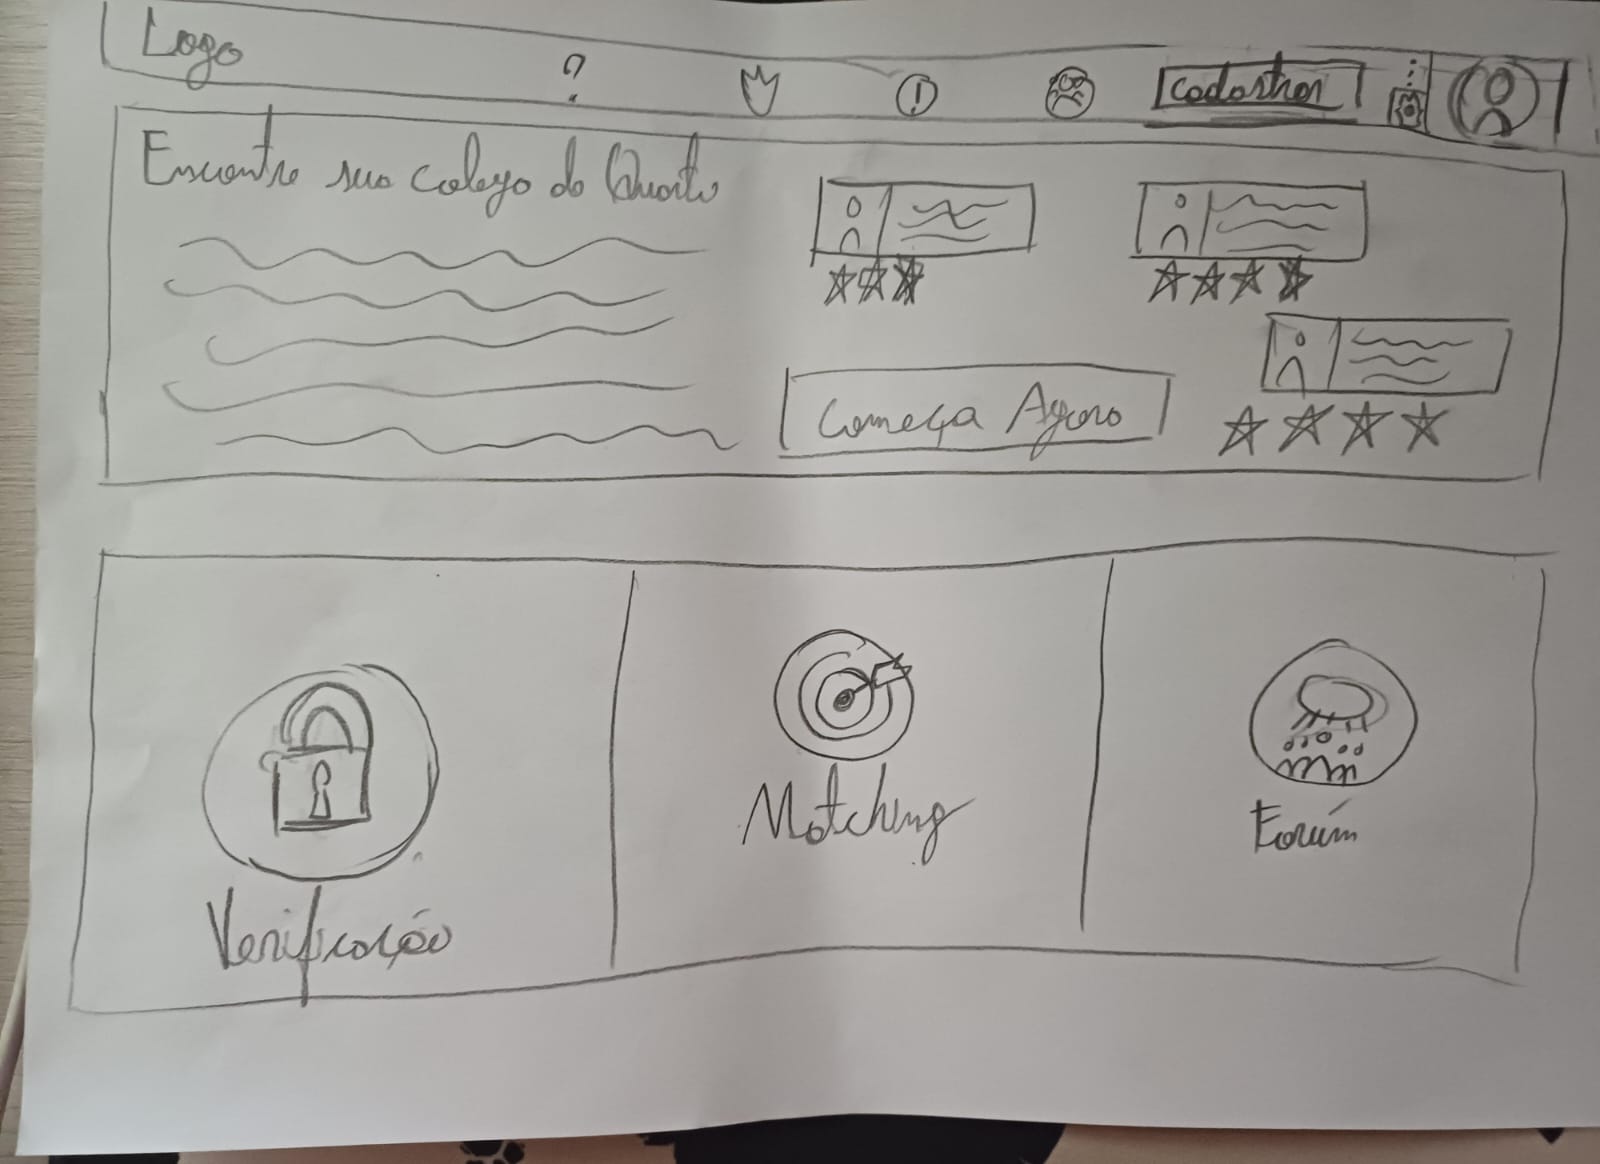 Logo
?
!
Cadastrar
Encontre seu colega de Quarto
Começa Agora
Verificação
Matching
Forúm